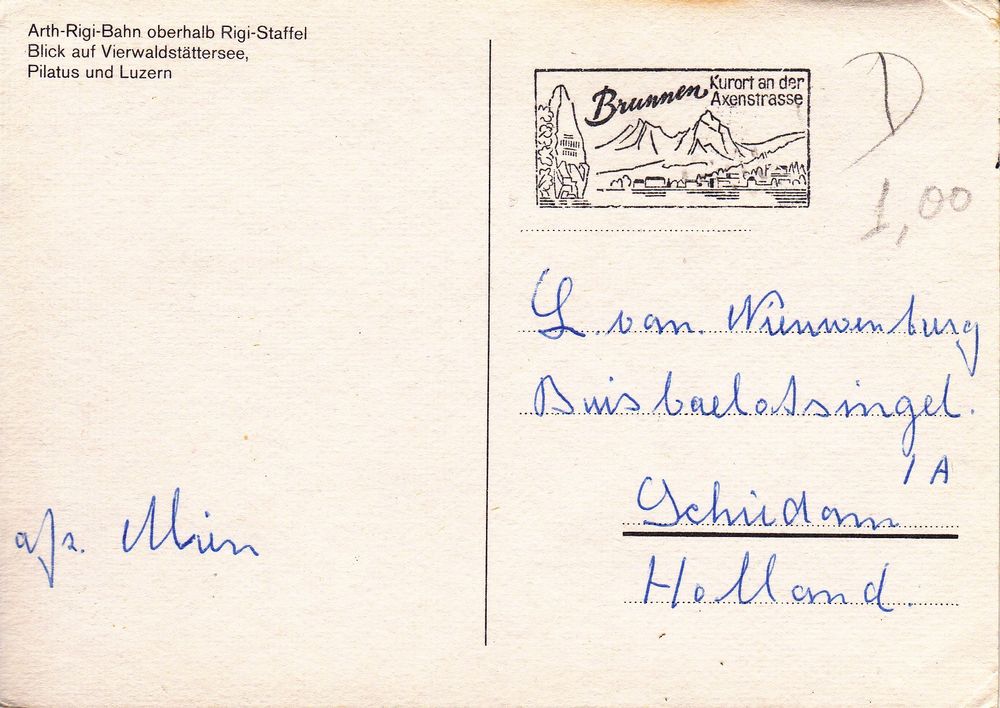 Arth-Rigi-Bahn oberhalb Rigi-Staffel
Blick auf Vierwaldstättersee,
Pilatus und Luzern
Brunnen Kurort an der
Axenstrasse
D
1,00
L. van. Nieuwenburg
Buisbaelotsingel.
1 A
Schiedam
Holland.
afz. Mien